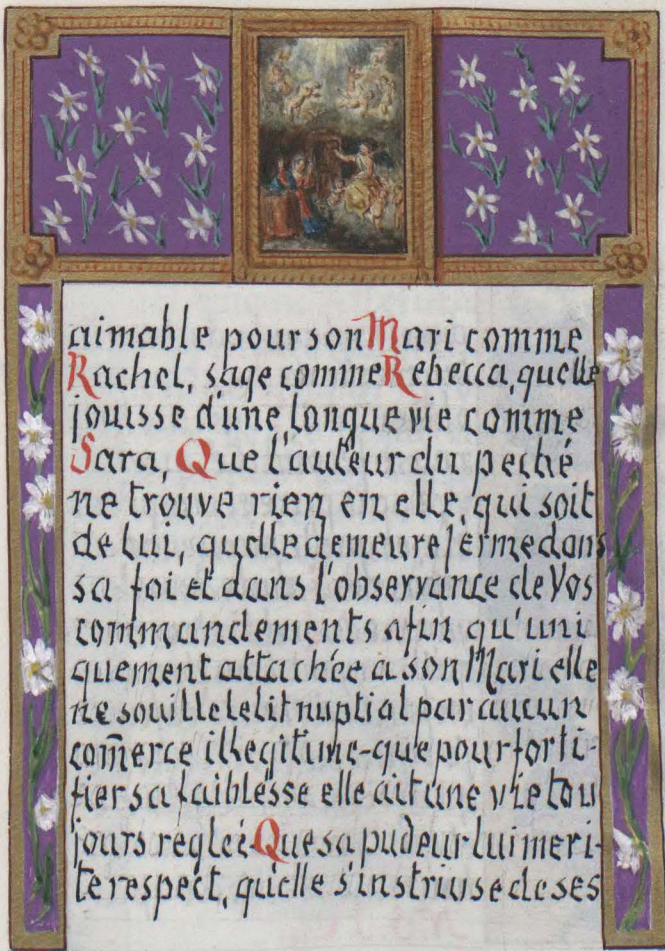 aimable pour son Mari comme
Rachel, sage comme Rebecca, quelle
jouisse d'une longue vie comme
Sara, Que l'auteur du peché
ne trouve rien en elle, qui soit
de lui, quelle demeure ferme dans
sa foi et dans l'observance de Vos
commandements afin qu'uni
quement attachée a son Mari elle
ne souille le lit nuptial par aucun
com̃erce illegitime-que pour forti-
fier sa faiblesse elle ait une vie tou
jours reglée-Que sa pudeur lui meri-
te respect, qu'elle s'instriuse de ses